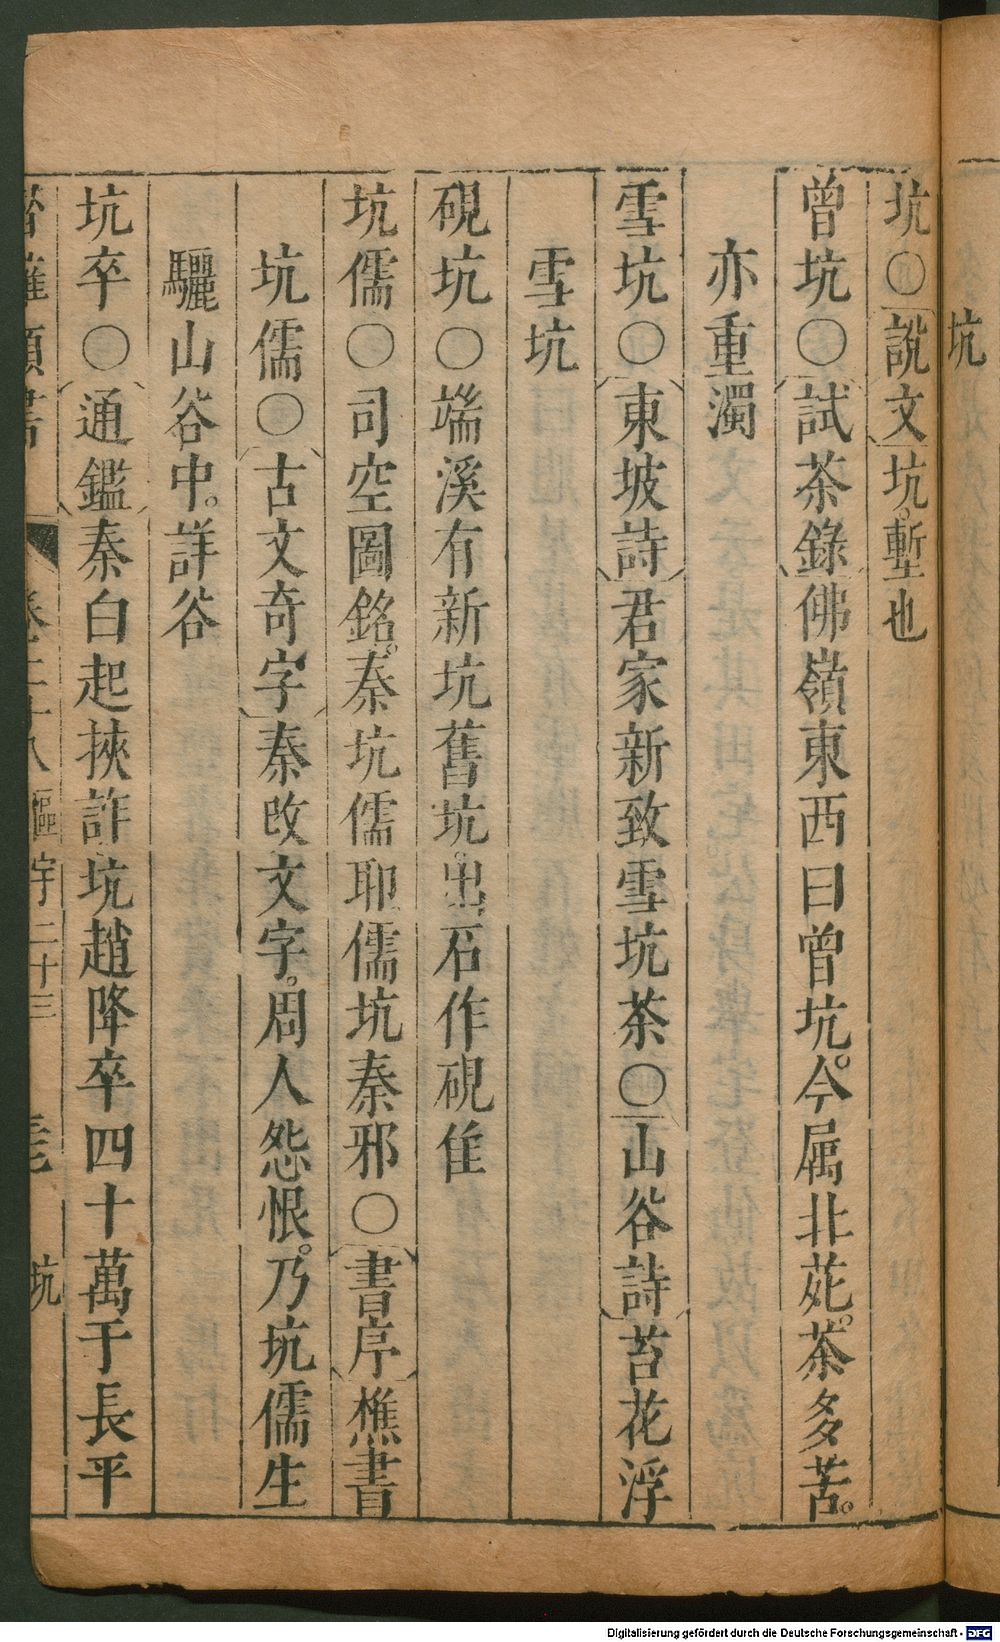 坑
坑○説文坑。塹也
曾坑○試茶錄佛嶺東西曰曾坑。今屬北苑。茶多苦。
亦重濁
雪坑○東坡詩君家新致雪坑茶○山谷詩苔花浮
雪坑
硯坑○端溪有新坑舊坑。出石作硯佳
坑儒○司空圖銘。秦坑儒耶儒坑秦邪○書序樵書
坑儒○古文奇字秦改文字。周人怨恨。乃坑儒生
驪山谷中。詳谷
坑卒○通鑑秦白起挾詐坑趙降卒四十萬于長平
卷二十八 二十三 坑
Digitalisierung gefördert durch die Deutsche Forschungsgemeinschaft - DFG